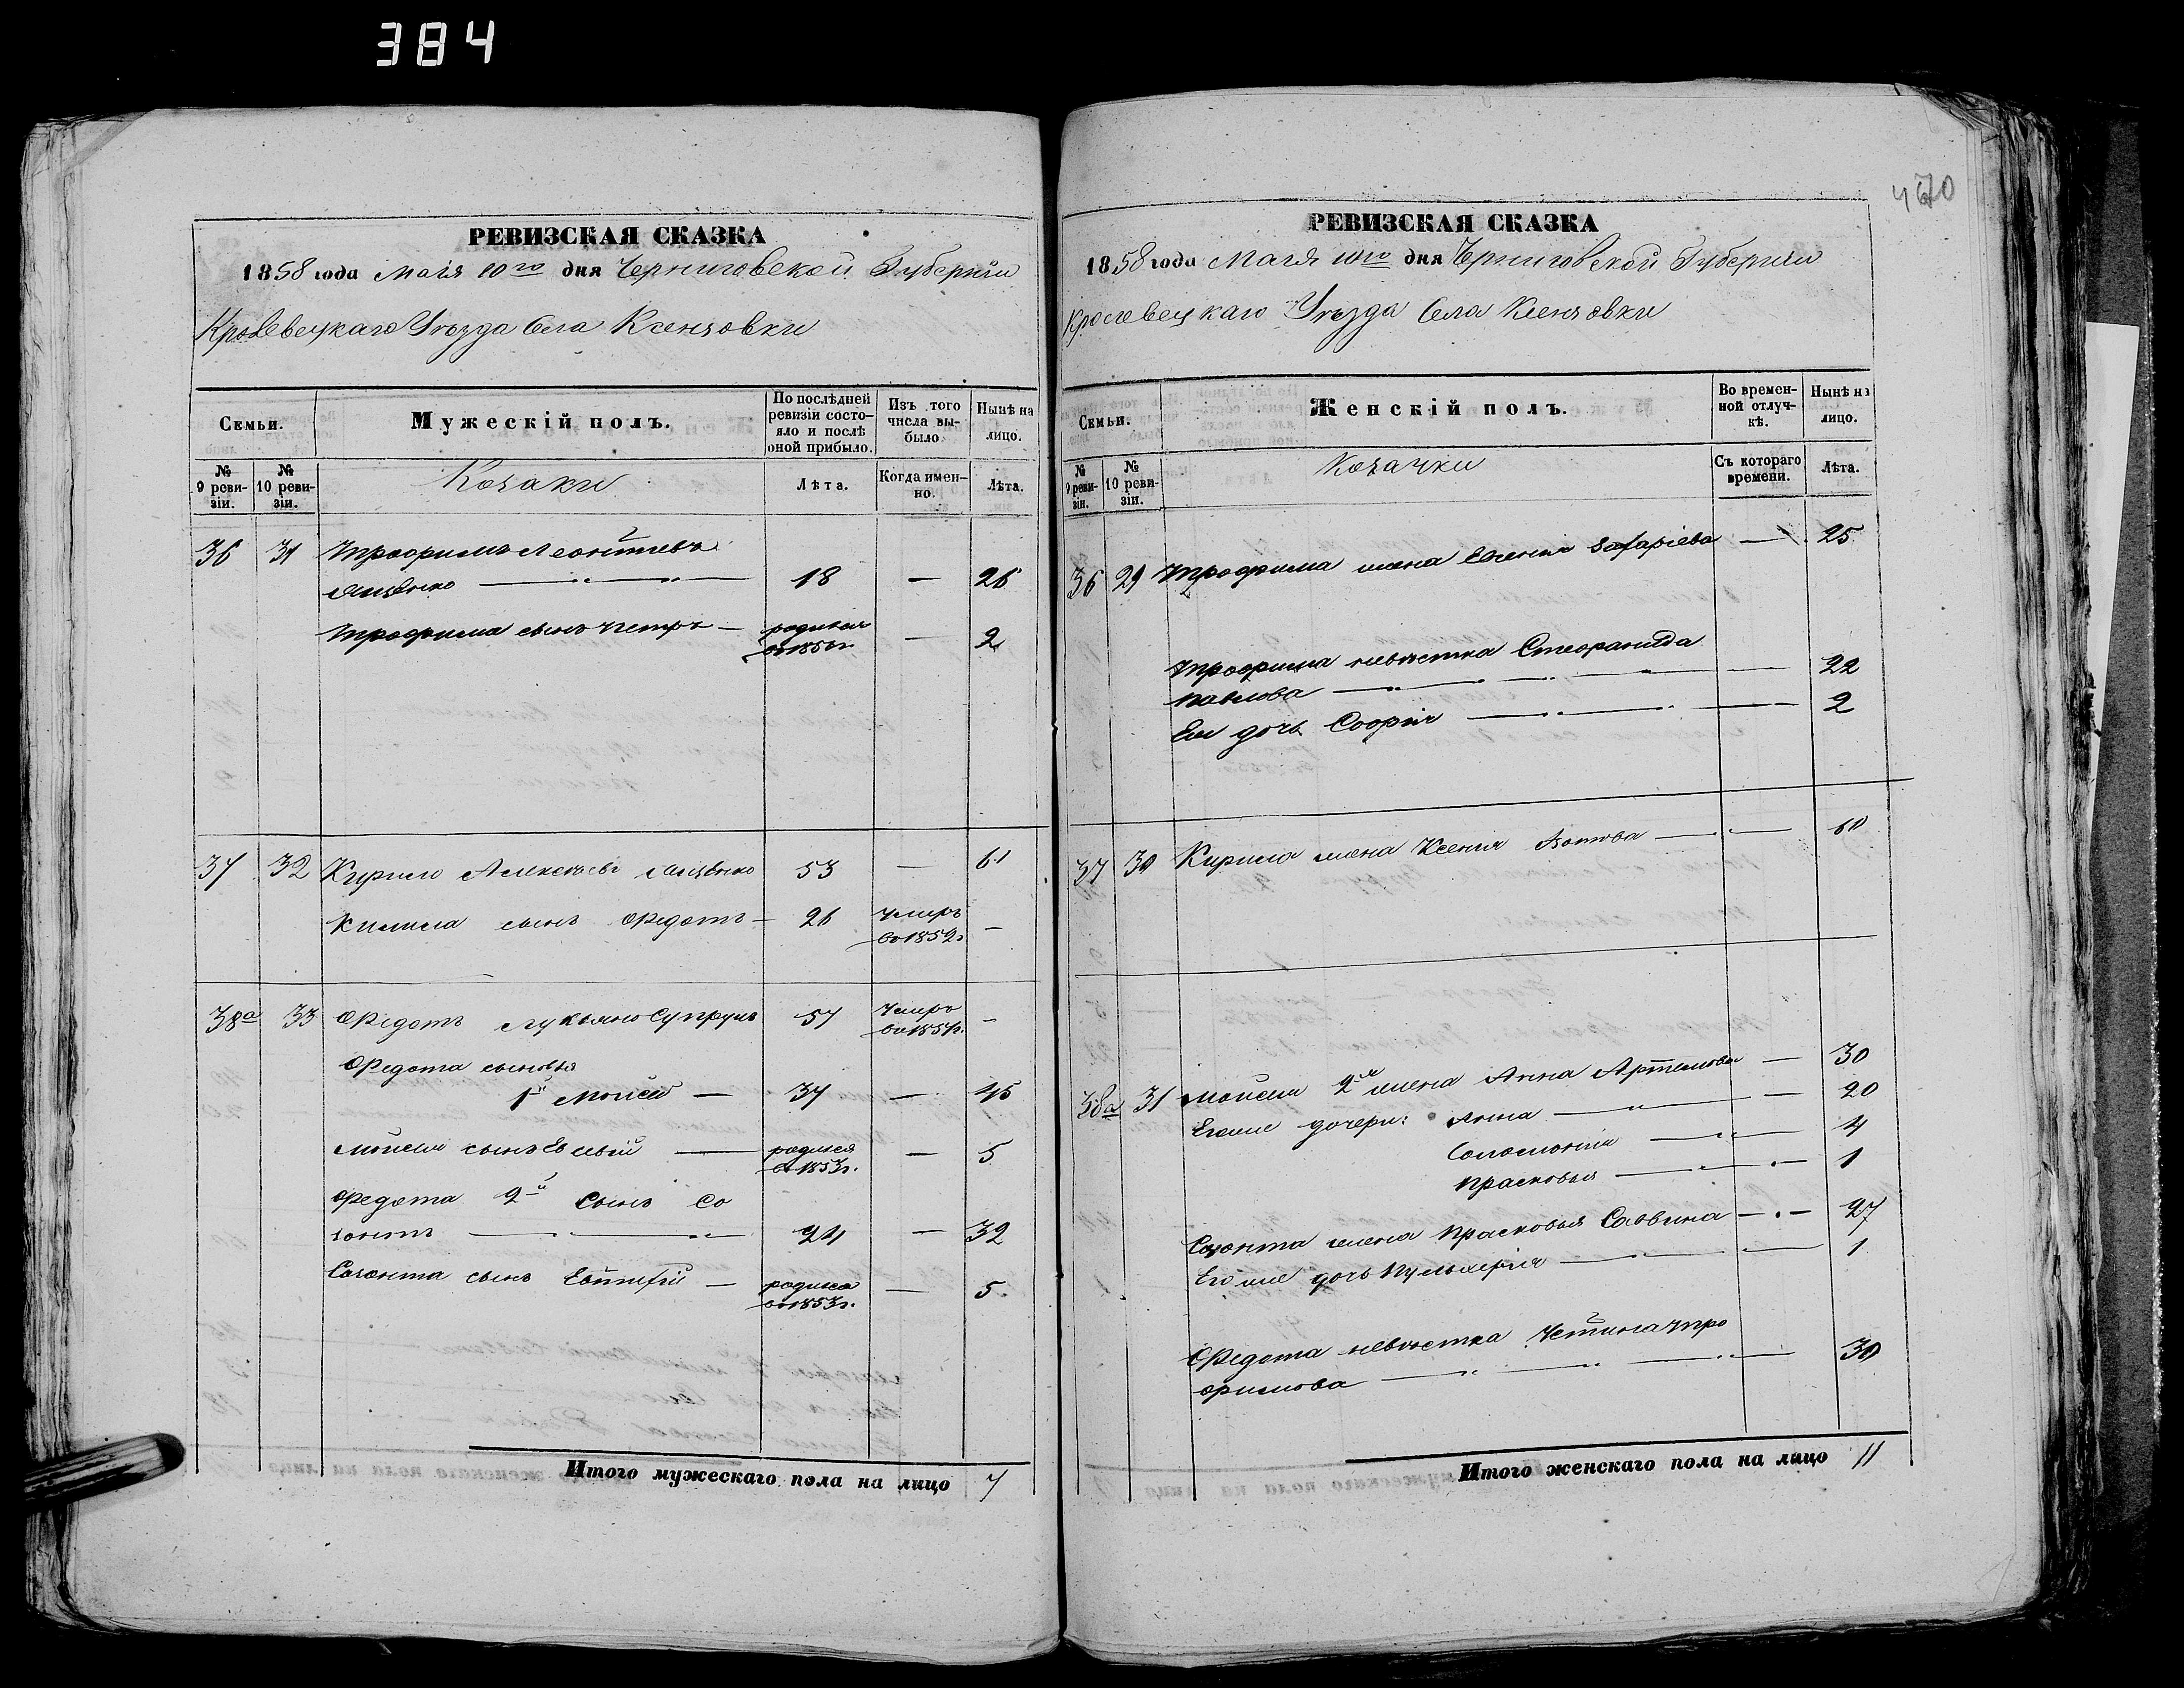 384
470
РЕВИЗСКАЯ СКАЗКА
1858 года Маія 10го дня Черниговской Губерніи
Кролевецкаго Уѣзда Села Ксензовки
Семьи.
Мужескій полъ.
По послѣдней ревизіи состояло и послѣ оной прибыло.
Изъ того числа выбыло.
Нынѣ на лицо.
№ 9 ревизіи.
№ 10 ревизіи.
Козаки
Лѣта.
Когда именно.
Лѣта.
36 31 Трофимъ Леонтіевъ
18 — 26
Трофима сынъ Петръ — родился въ 1856г. — 2
37 32 Кирило Алексѣевъ 53 — 61
сынъ Федотъ — 26 умеръ въ 1852г. —
38а 33 Федотъ Супрунъ 57 умеръ —
Федота сыновья
1й Мойсей — 37 — 45
Мойсея сынъ Евсевій — родился въ 1853г. — 5
Федота 2й сынъ Со
зонтъ — 24 — 32
Созонта сынъ — родился въ 1853г. — 5
Итого мужескаго пола на лицо 7
РЕВИЗСКАЯ СКАЗКА
1858 года Маія 10го дня Черниговской Губерніи
Кролевецкаго Уѣзда Села Ксензовки
Семьи.
Женскій полъ.
Во временной отлучкѣ.
Нынѣ на лицо.
№ 9 ревизіи.
№ 10 ревизіи.
Козачки
Съ котораго времени.
Лѣта.
36 29 Трофима жена Евгенія — 25
Трофима невѣстка Стефанида
Павлова — 22
Ея дочь Софія — 2
37 30 Кирила жена Ксенія — 60
38а 31 Мойсея 2я жена Анна Артемова — 30
Егоже дочери: Анна — 20
Соломонія — 4
Прасковья — 1
Созонта жена Прасковья Саввина — 27
Егоже дочь Пульхерія — 1
Федота невѣстка Устина Тро
фимова — 30
Итого женскаго пола на лицо 11